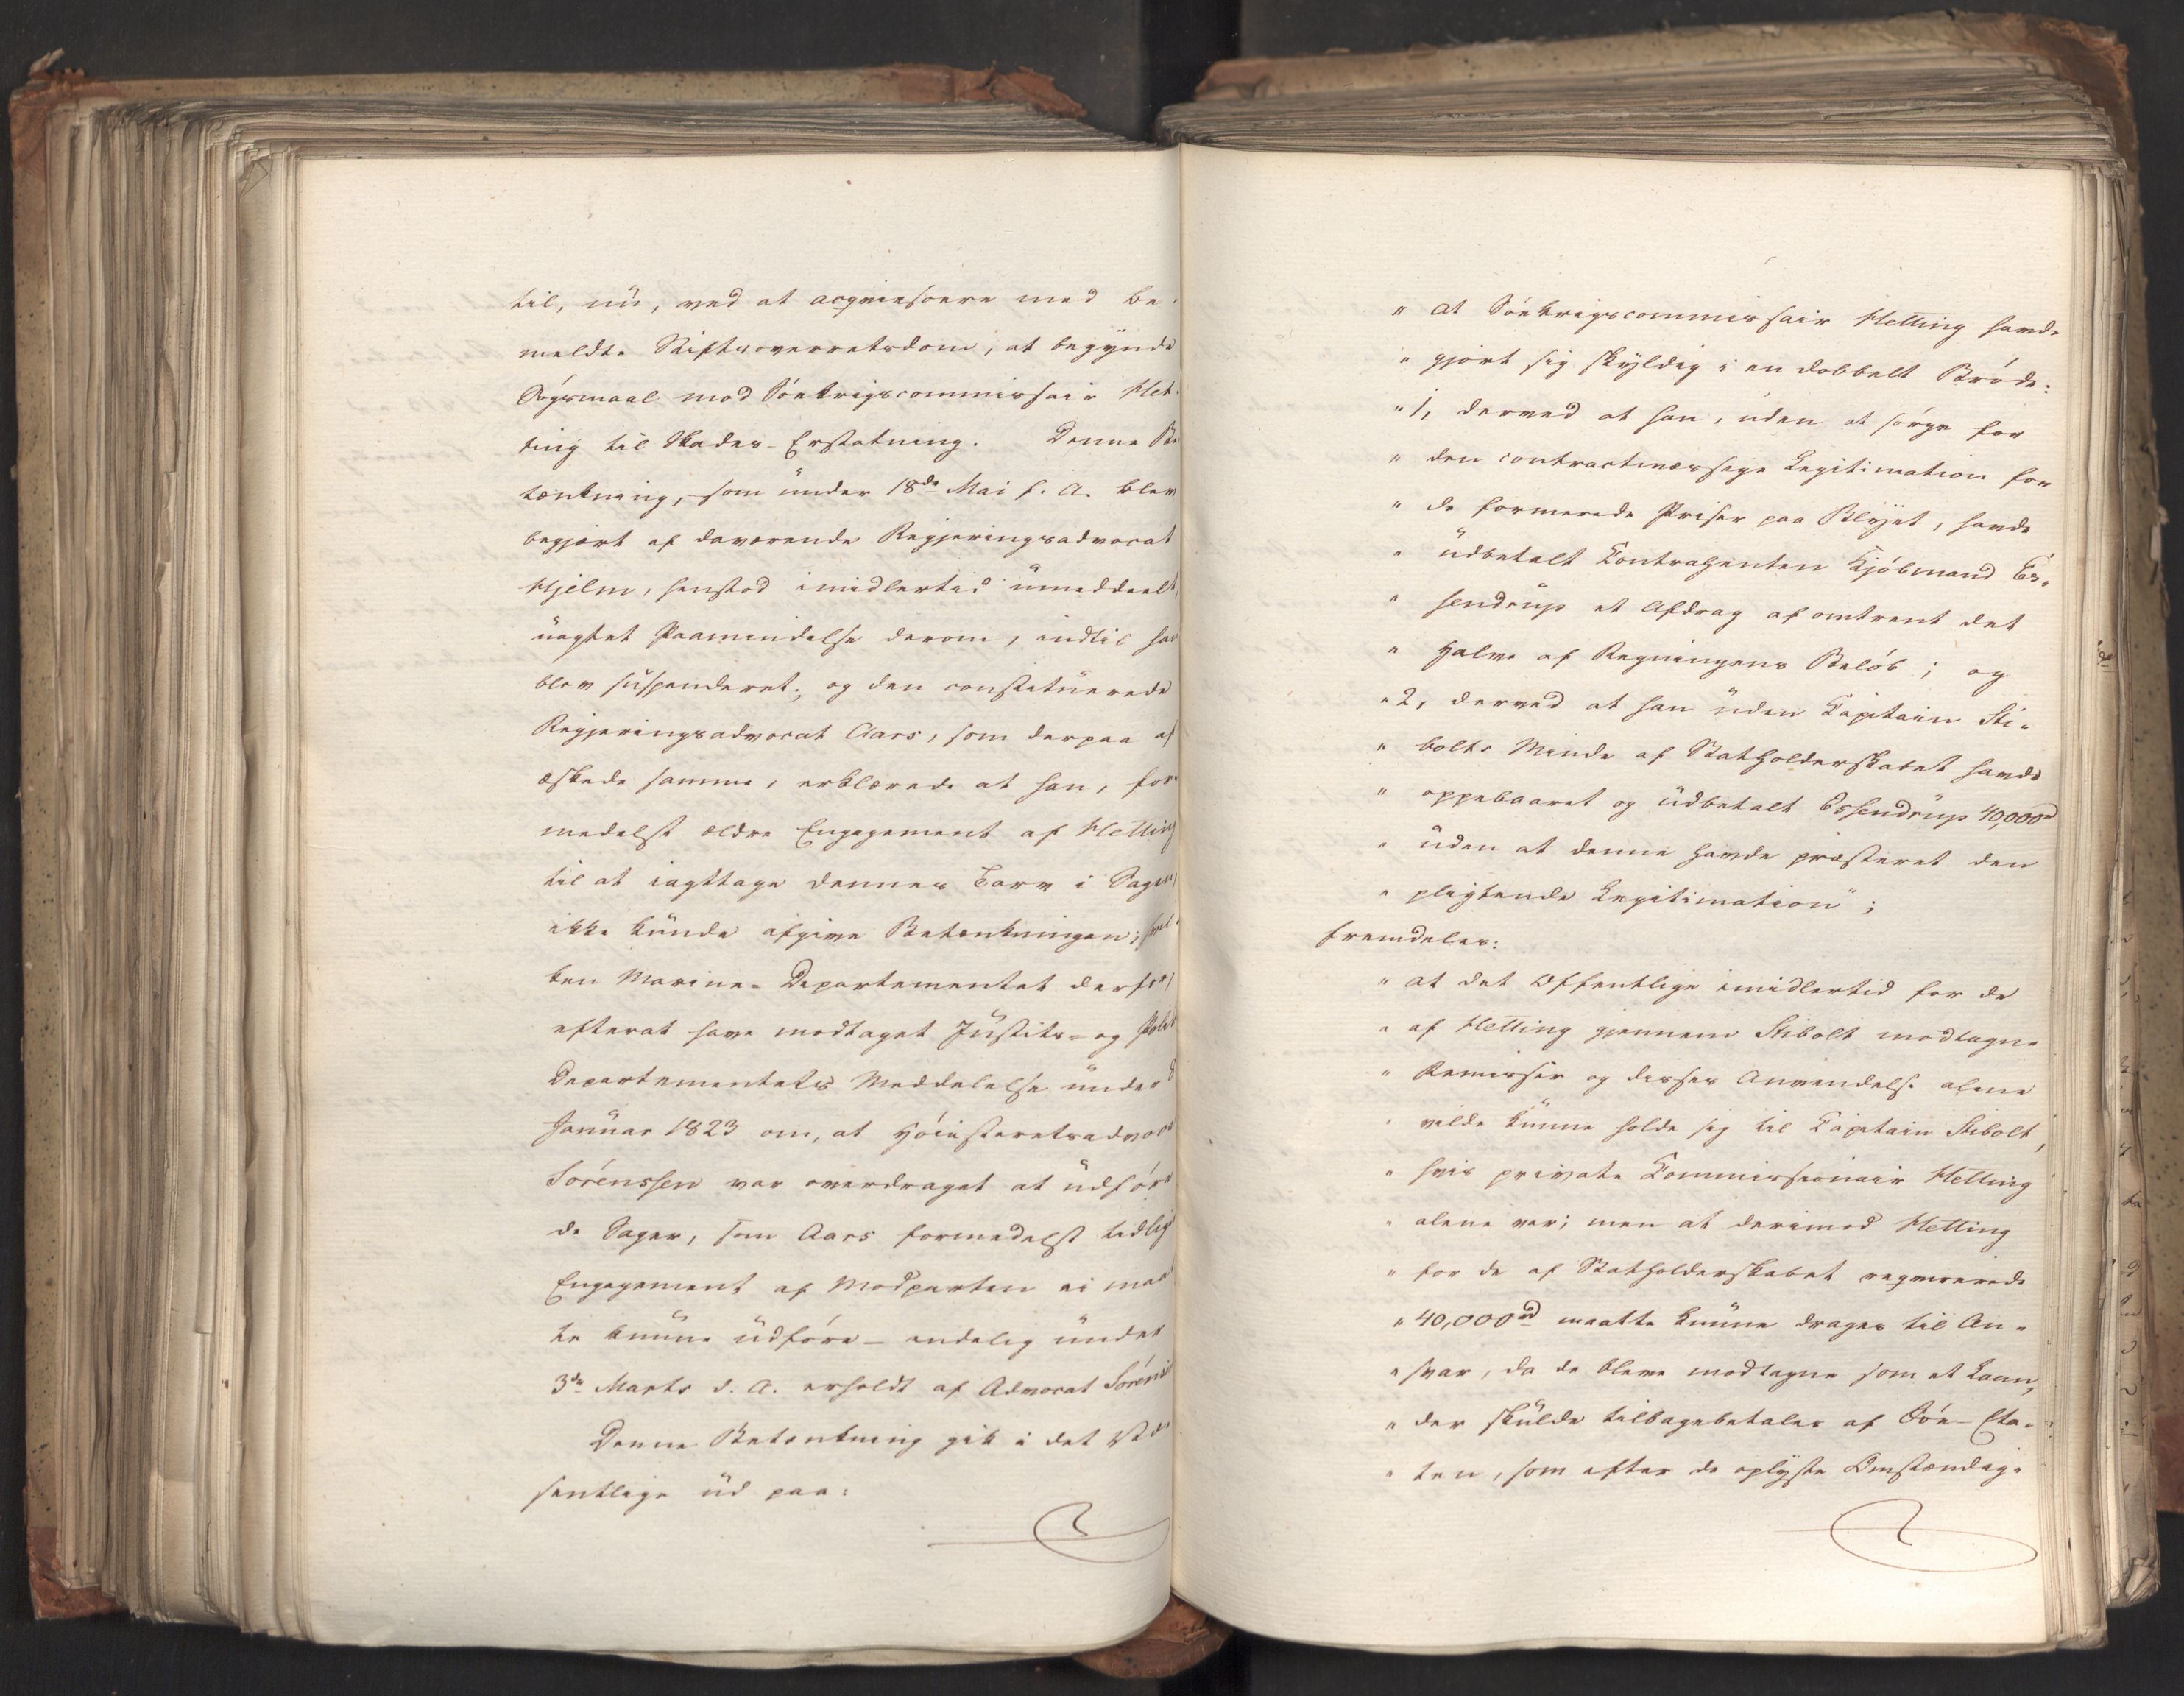 til, nu, ved at acqviescere med be-
meldte Stiftsoverretsdom, at begynde
Søgsmaal mod Søekrigscommissair Het-
ting til Skades-Erstatning. Denne Be
tænkning, som under 18de Mai f. A. blev
begjært af daværende Regjeringsadvocat
Hjelm, henstod imidlertid umeddeelt,
uagtet Paamindelse derom, indtil han
blev suspenderet; og den constituerede
Regjeringsadvocat Aars, som derpaa af
æskede samme, erklærede at han, for-
medelst ældre Engagement af Hetting
til at iagttage dennes Tarv i Sagen,
ikke kunde afgive Betænkningen; hvil-
ken Marine-Departementet derfor,
efterat have modtaget Justits- og Politi
Departementets Meddelelse under 8
Januar 1823 om, at Høiesteretsadvocat
Sørenssen var overdraget at udføre
de Sager, som Aars formedelst tidlige
Engagement af Modparten ei maat
te kunne udføre – endelig under
3de Marts d. A. erholdt af Advocat Sørenss
Denne Betænkning gik i det Væ
sentlige ud paa:
" at Søekrigscommissair Hetting havde
" gjort sig skyldig i en dobbelt Brøde:
" 1, derved at han, uden at sørge for
" den contractmæssige Legitimation for
" de formerede Priser paa Blyet, havde
" udbetalt Contrahenten Kjøbmand Es-
" sendrup et Afdrag af omtrent det
" halve af Regningens Beløb; og
" 2, derved at han uden Capitain Sti-
" bolts Minde af Statholderskabet havde
" oppebaaret og udbetalt Essendrup 40,000rd
" uden at denne havde præsteret den
" pligtende Legitimation";
fremdeles:
" at det Offentlige imidlertid for de
" af Hetting gjennem Stibolt modtagne
" Remisser og disses Anvendelse alene
" vilde kunne holde sig til Capitain Stibolt,
" hvis private Commissionair Hetting
" alene var; men at derimod Hetting
" for de af Statholderskabet reqvirerede
" 40,000rd maatte kunne drages til An-
" svar, da de bleve modtagne som et Laan,
" der skulde tilbagebetales af Søe-Eta-
" ten, som efter de oplyste Omstændig-